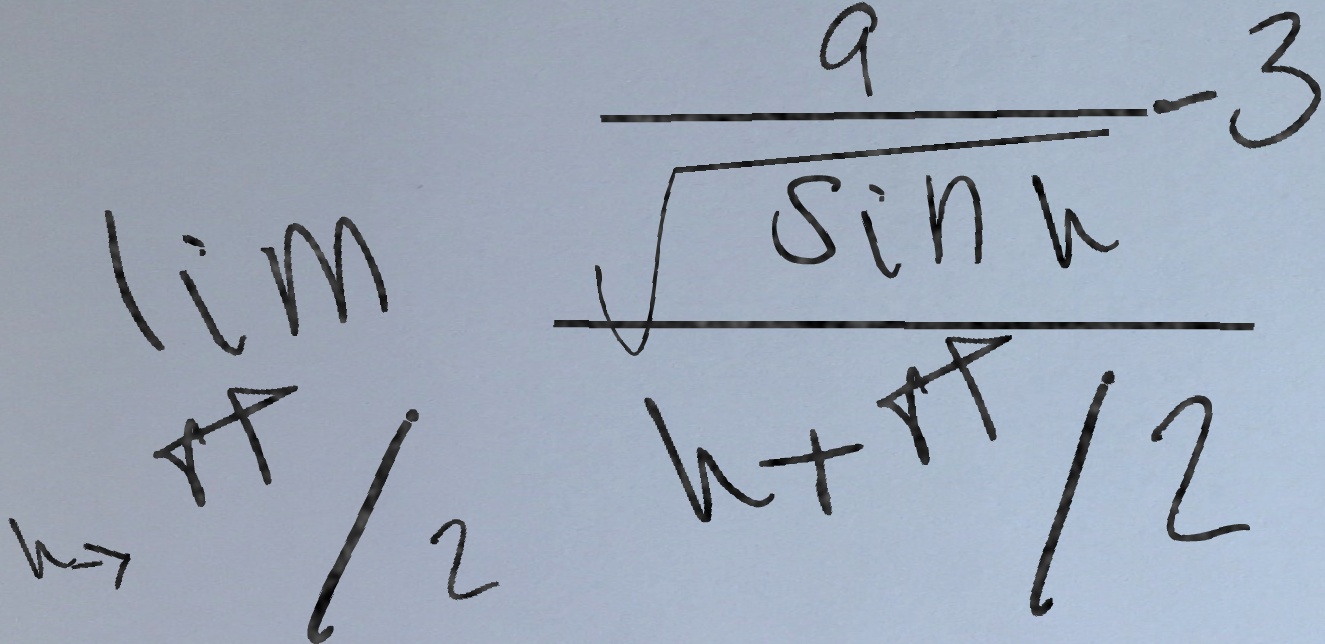 lim h→π/2 (9/√(sin h) - 3)/(h+π/2)